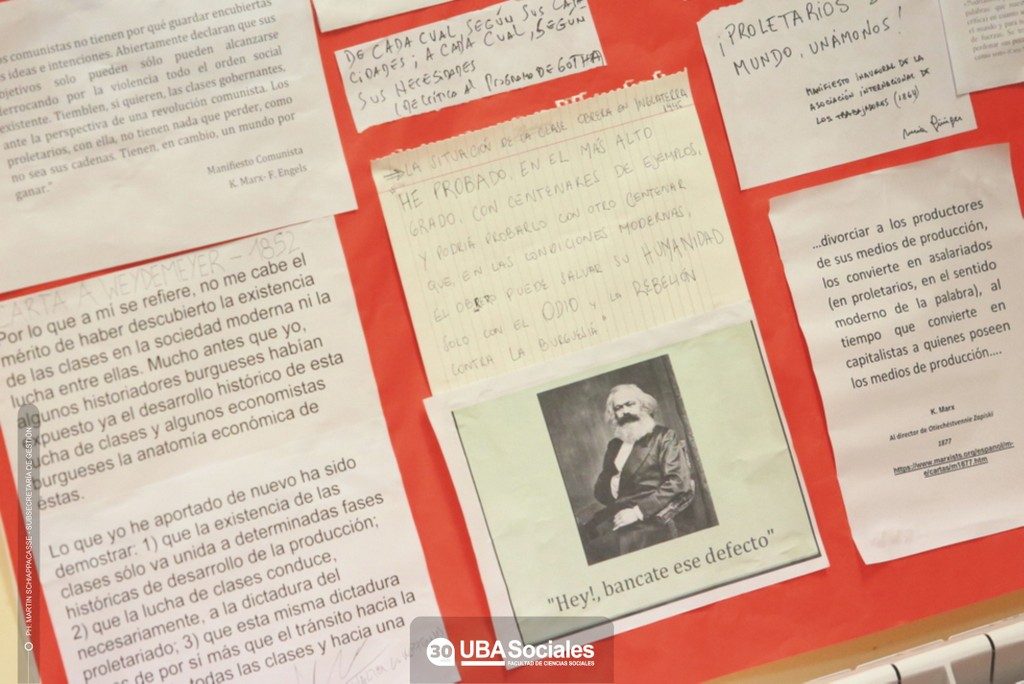 comunistas no tienen por qué guardar encubiertas
ideas e intenciones. Abiertamente declaran que sus
objetivos solo pueden sólo pueden alcanzarse
derrocando por la violencia todo el orden social
existente. Tiemblen, si quieren, las clases gobernantes,
ante la perspectiva de una revolución comunista. Los
proletarios, con ella, no tienen nada que perder, como
no sea sus cadenas. Tienen, en cambio, un mundo por
ganar."
Manifiesto Comunista
K. Marx- F. Engels
CARTA A WEYDEMEYER - 1852
Por lo que a mí se refiere, no me cabe el
mérito de haber descubierto la existencia
de las clases en la sociedad moderna ni la
lucha entre ellas. Mucho antes que yo,
algunos historiadores burgueses habían
expuesto ya el desarrollo histórico de esta
lucha de clases y algunos economistas
burgueses la anatomía económica de
éstas.
Lo que yo he aportado de nuevo ha sido
demostrar: 1) que la existencia de las
clases sólo va unida a determinadas fases
históricas de desarrollo de la producción;
2) que la lucha de clases conduce,
necesariamente, a la dictadura del
proletariado; 3) que esta misma dictadura
es de por sí más que el tránsito hacia la
todas las clases y hacia una
DE CADA CUAL, SEGÚN SUS CAPA
CIDADES; A CADA CUAL, SEGÚN
SUS NECESDADES
(DE CRÍTICA AL PROGRAMA DE GOTHA)
LA SITUACIÓN DE LA CLASE OBRERA EN INGLATERRA
1845
"HE PROBADO, EN EL MÁS ALTO
GRADO, CON CENTENARES DE EJEMPLOS,
Y PODRÍA PROBARLO CON OTRO CENTENAR
QUE, EN LAS CONDICIONES MODERNAS,
EL OBRERO PUEDE SALVAR SU HUMANIDAD
SOLO CON EL ODIO Y LA REBELIÓN
CONTRA LA BURGUESÍA"
"Hey!, bancate ese defecto"
¡PROLETARIOS
MUNDO, UNÁMONOS!
MANIFIESTO INAUGURAL DE LA
ASOCIACIÓN INTERNACIONAL DE
LOS TRABAJADORES (1864)
...divorciar a los productores
de sus medios de producción,
los convierte en asalariados
(en proletarios, en el sentido
moderno de la palabra), al
tiempo que convierte en
capitalistas a quienes poseen
los medios de producción....
K. Marx
Al director de Otiechéstvennie Zapiski
1877
https://www.marxists.org/espanol/m-
e/cartas/m1877.htm
PH. MARTIN SCHIAPPACASSE - SUBSECRETARÍA DE GESTIÓN
30 UBA Sociales
FACULTAD DE CIENCIAS SOCIALES